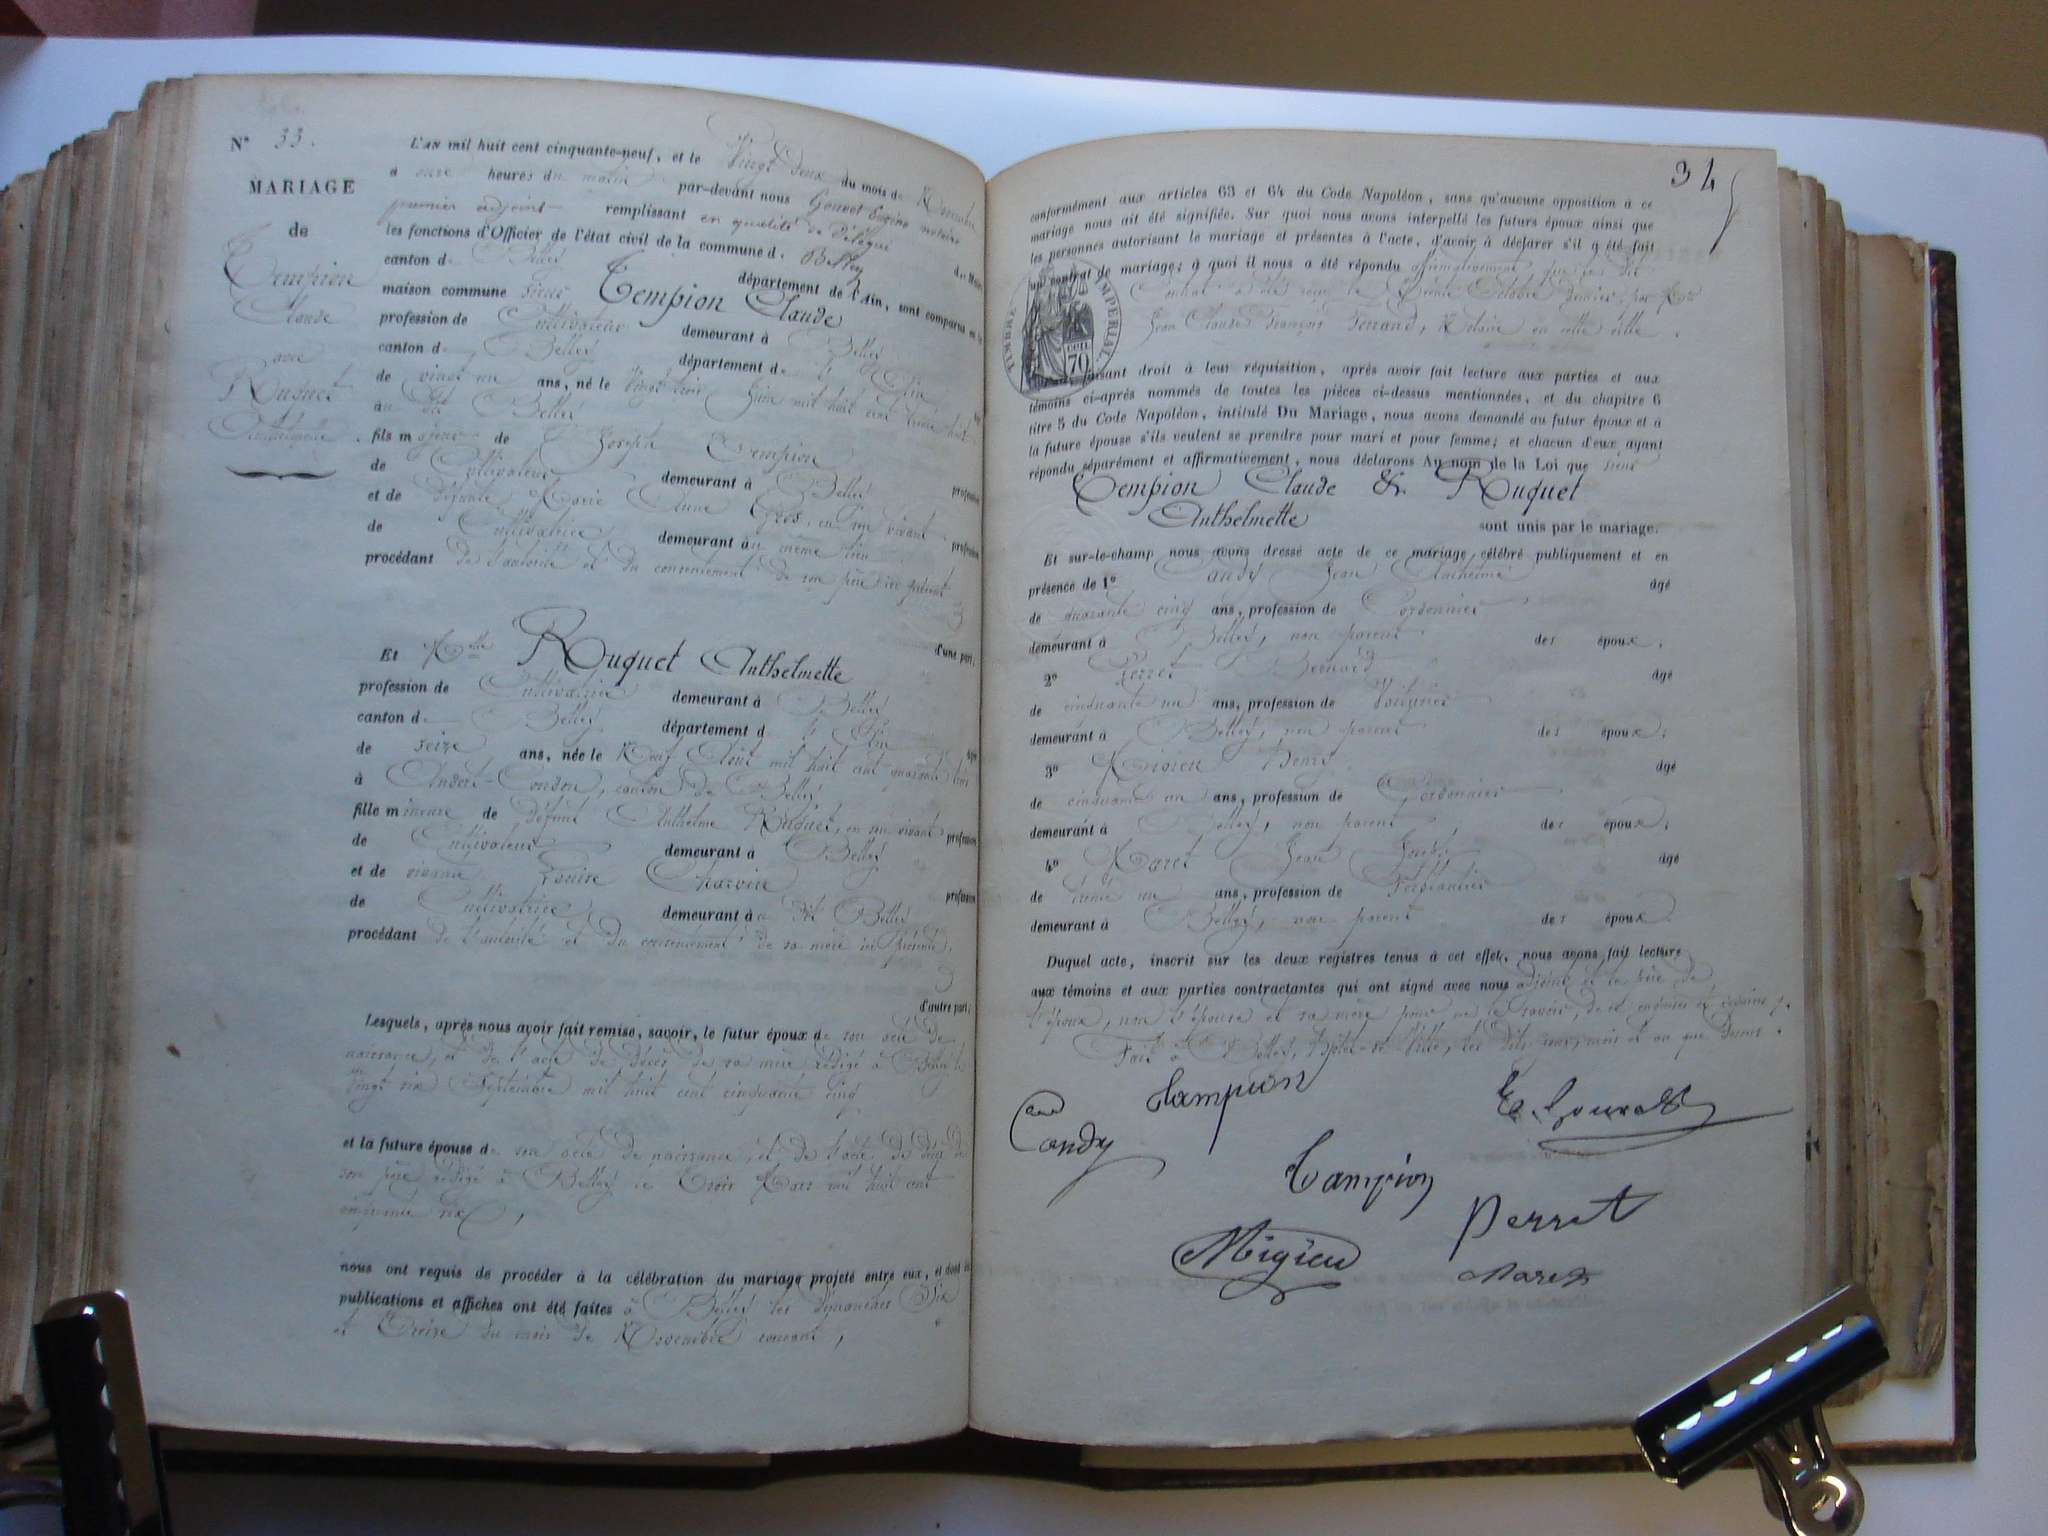 N° 33.
MARIAGE
de
Tempion
Claude
avec
Ruquet
Anthelmette
L'AN mil huit cent cinquante-neuf, et le Vingt deux du mois de Novembre
à onze heures du matin par-devant nous Gouvet Eugène notaire
premier adjoint remplissant en qualité de délégué du Maire
les fonctions d'Officier de l'état civil de la commune de Belley
canton de Belley département de l'Ain, sont comparus en la
maison commune sieur Tempion Claude
profession de Cultivateur demeurant à Belley
canton de Belley département de l'Ain
de vingt un ans, né le Vingt trois Juin mil huit cent trente huit
au dit Belley
fils majeur de Joseph Tempion
de Cultivateur demeurant à Belley profession
et de défunte Marie Anne Gros, en son vivant profession
de Cultivatrice demeurant au même lieu
procédant de l'autorité et du consentement de son père ici présent
d'une part,
Et Melle Ruquet Anthelmette
profession de Cultivatrice demeurant à Belley
canton de Belley département de l'Ain
de seize ans, née le Neuf Août mil huit cent quarante trois
à Andert-Condon, canton de Belley
fille mineure de défunt Anthelme Ruquet, en son vivant profession
de Cultivateur demeurant à Belley
et de vivante Louise Charvin profession
de Cultivatrice demeurant au dit Belley
procédant de l'autorité et du consentement de sa mère ici présente,
d'autre part;
Lesquels, après nous avoir fait remise, savoir, le futur époux de son acte de
naissance, et de l'acte de décès de sa mère rédigé à Belley le
vingt six Septembre mil huit cent cinquante cinq
et la future épouse de son acte de naissance, et de l'acte de décès de
son père rédigé à Belley le Trois Mars mil huit cent
cinquante six,
nous ont requis de procéder à la célébration du mariage projeté entre eux, et dont les
publications et affiches ont été faites à Belley les dimanches Six
et Treize du mois de Novembre courant,
34
conformément aux articles 63 et 64 du Code Napoléon, sans qu'aucune opposition à ce
mariage nous ait été signifiée. Sur quoi nous avons interpellé les futurs époux ainsi que
les personnes autorisant le mariage et présentes à l'acte, d'avoir à déclarer s'il a été fait
un contrat de mariage; à quoi il nous a été répondu affirmativement, que ce dit
Contrat a été reçu le Octobre dernier, par Me
Jean Claude François Ferrand, Notaire en cette ville.
TIMBRE IMPERIAL
70
Faisant droit à leur réquisition, après avoir fait lecture aux parties et aux
témoins ci-après nommés de toutes les pièces ci-dessus mentionnées, et du chapitre 6
titre 5 du Code Napoléon, intitulé Du Mariage, nous avons demandé au futur époux et à
la future épouse s'ils veulent se prendre pour mari et pour femme; et chacun d'eux ayant
répondu séparément et affirmativement, nous déclarons Au nom de la Loi que sieur
Tempion Claude & Ruquet
Anthelmette sont unis par le mariage.
Et sur-le-champ nous avons dressé acte de ce mariage célébré publiquement et en
présence de 1° Candy Jean Anthelme âgé
de quarante cinq ans, profession de Cordonnier
demeurant à Belley, non parent des époux,
2° Perret Bernard âgé
de cinquante un ans, profession de Voiturier
demeurant à Belley, non parent des époux;
3° Migieu Henry âgé
de cinquante un ans, profession de Cordonnier
demeurant à Belley, non parent des époux;
4° Maret Jean Joseph âgé
de trente un ans, profession de Ferblantier
demeurant à Belley, non parent des époux.
Duquel acte, inscrit sur les deux registres tenus à cet effet, nous avons fait lecture
aux témoins et aux parties contractantes qui ont signé avec nous adjoint et le père de
l'époux, non l'épouse et sa mère pour ne le savoir, de ce enquises et requises.
Fait à Belley, Hôtel-de-Ville, les dits jour, mois et an que dessus.
Candy
Tampion
E. Gouvet
Tampion
Perret
Migieu
Maret